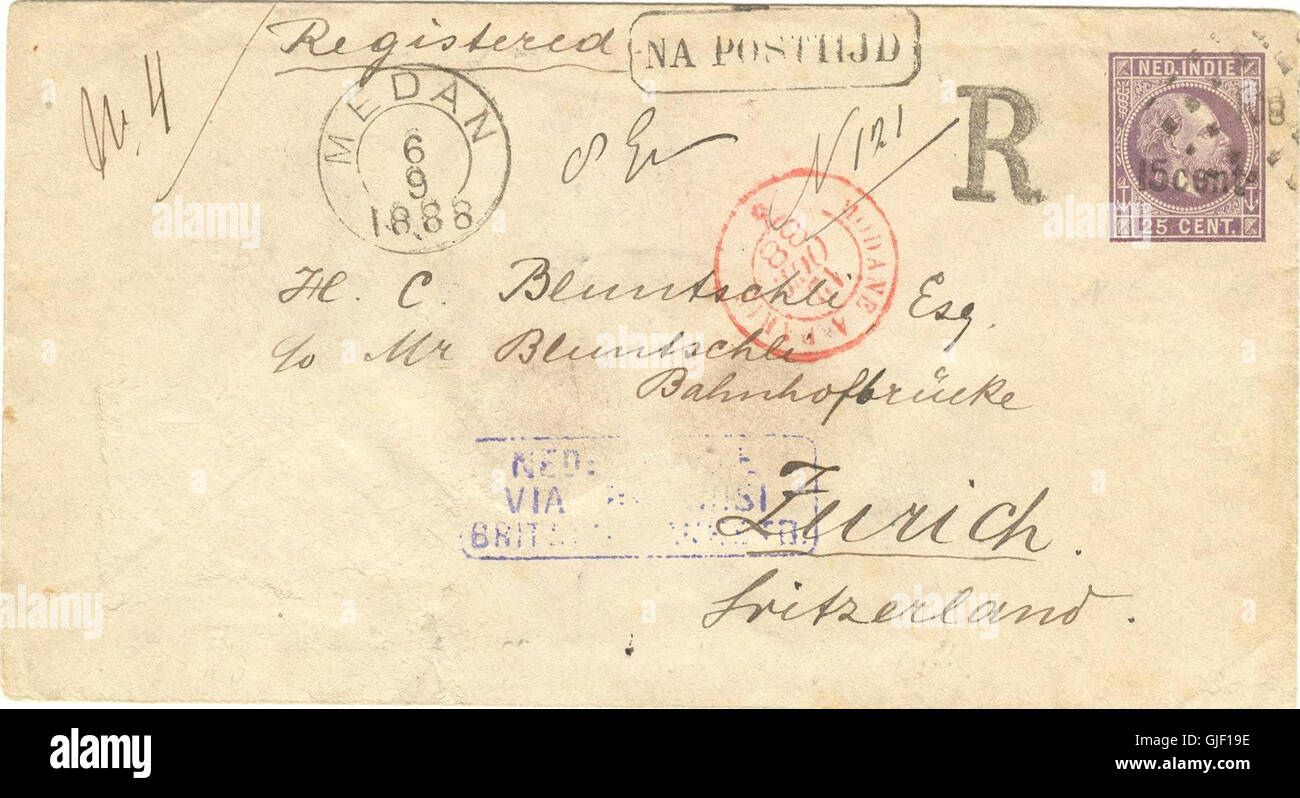 Registered
NA POSTTIJD
No. 4
MEDAN
6
9
1888
N 121
R
NED. INDIE
15 cent
25 CENT.
MODANE A PARIS
H. C. Bluntschli Esq.
c/o Mr Bluntschli
Bahnhofbrücke
NED.
VIA
BRIT
Zurich.
Switzerland.
alamy
alamy
Image ID: GJF19E
www.alamy.com